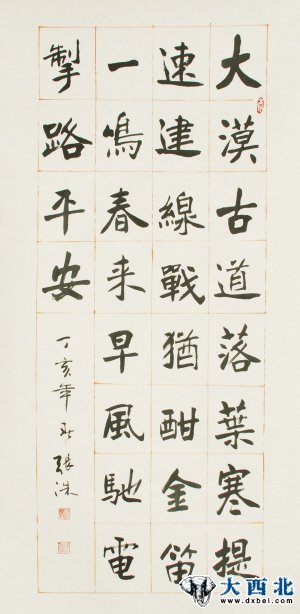 大漠古道落葉寒提
速建線戰猶酣金笛
一鳴春来早風馳電
掣路平安
丁亥年秋張洪
大西北
www.dxbei.com